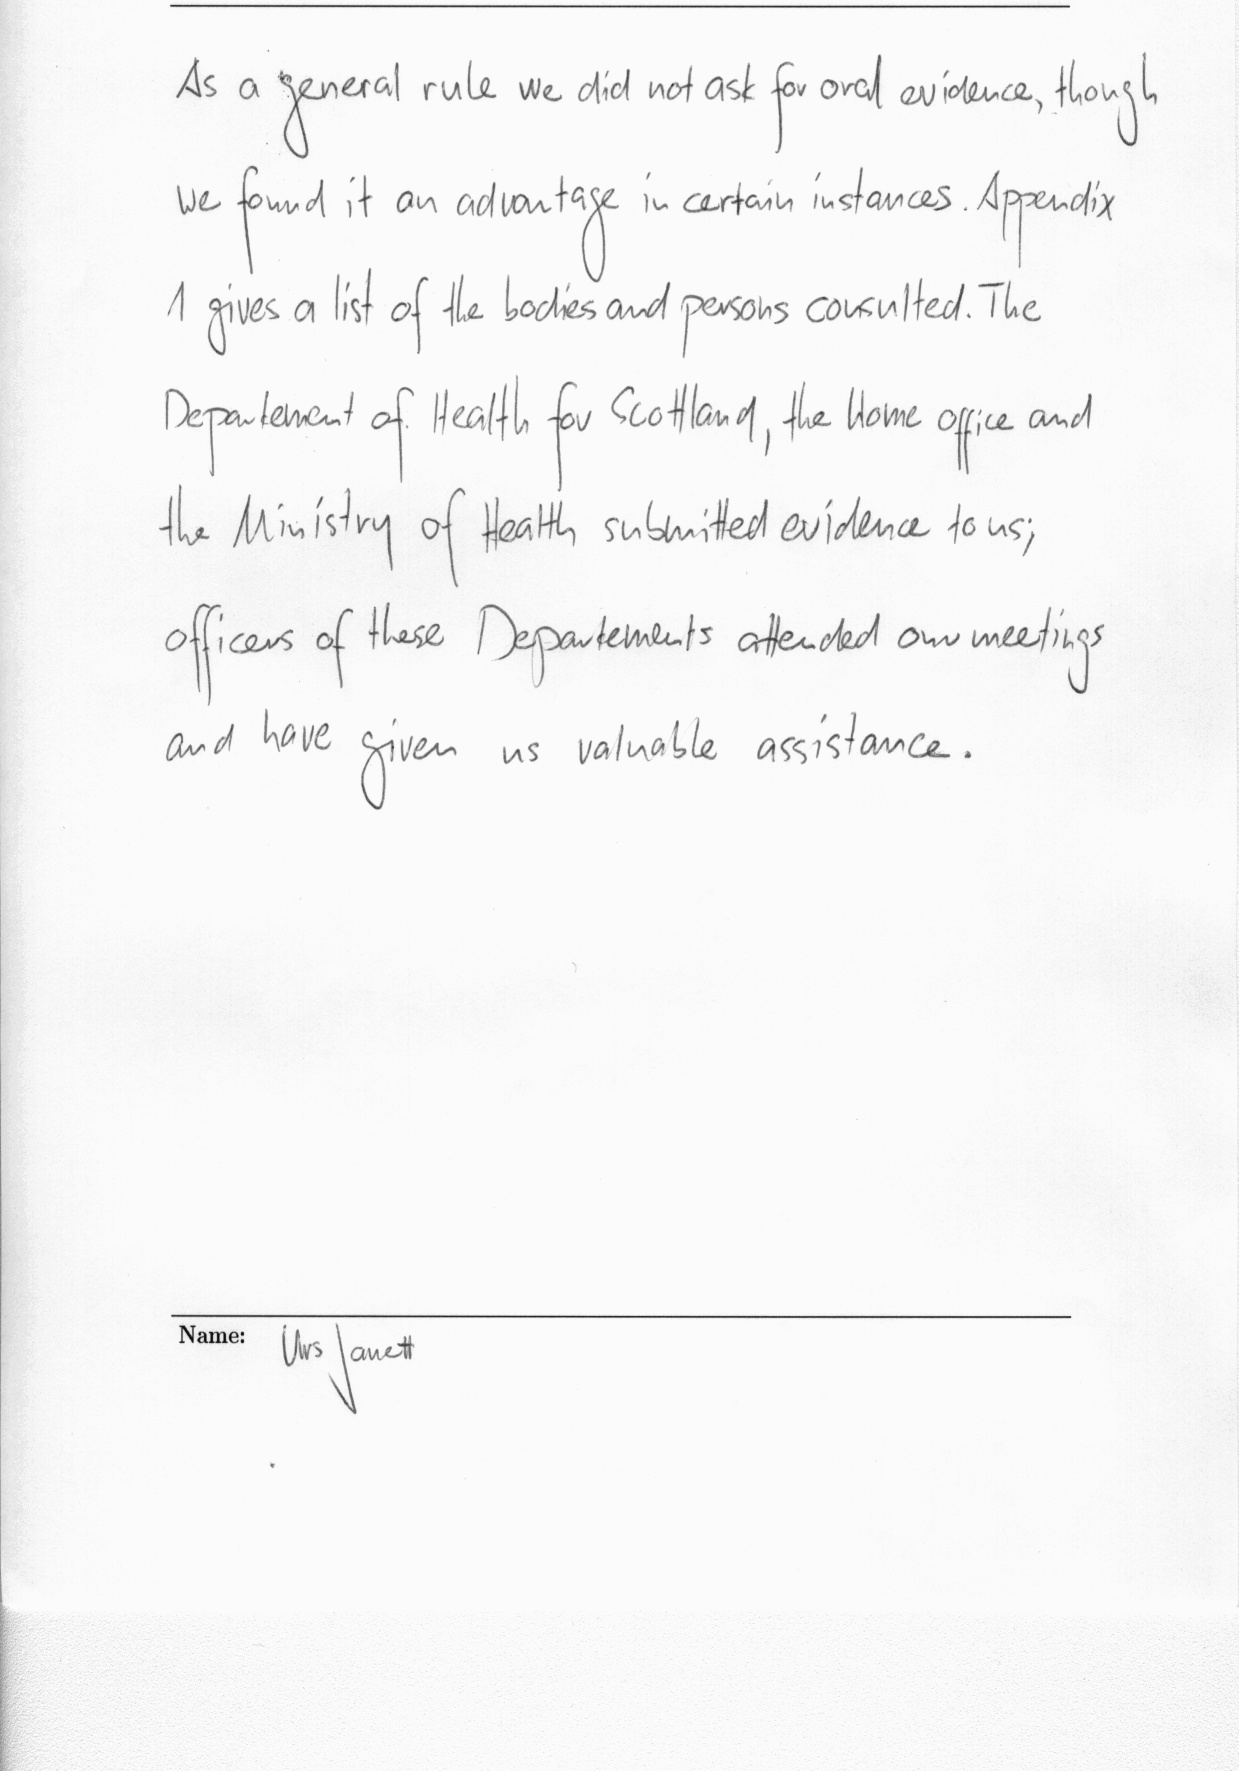 As a general rule we did not ask for oral evidence, though
we found it an advantage in certain instances. Appendix
1 gives a list of the bodies and persons consulted. The
Departement of Health for Scottland, the Home office and
the Ministry of Health submitted evidence to us;
officers of these Departements attended our meetings
and have given us valuable assistance.
Name: Urs Janett